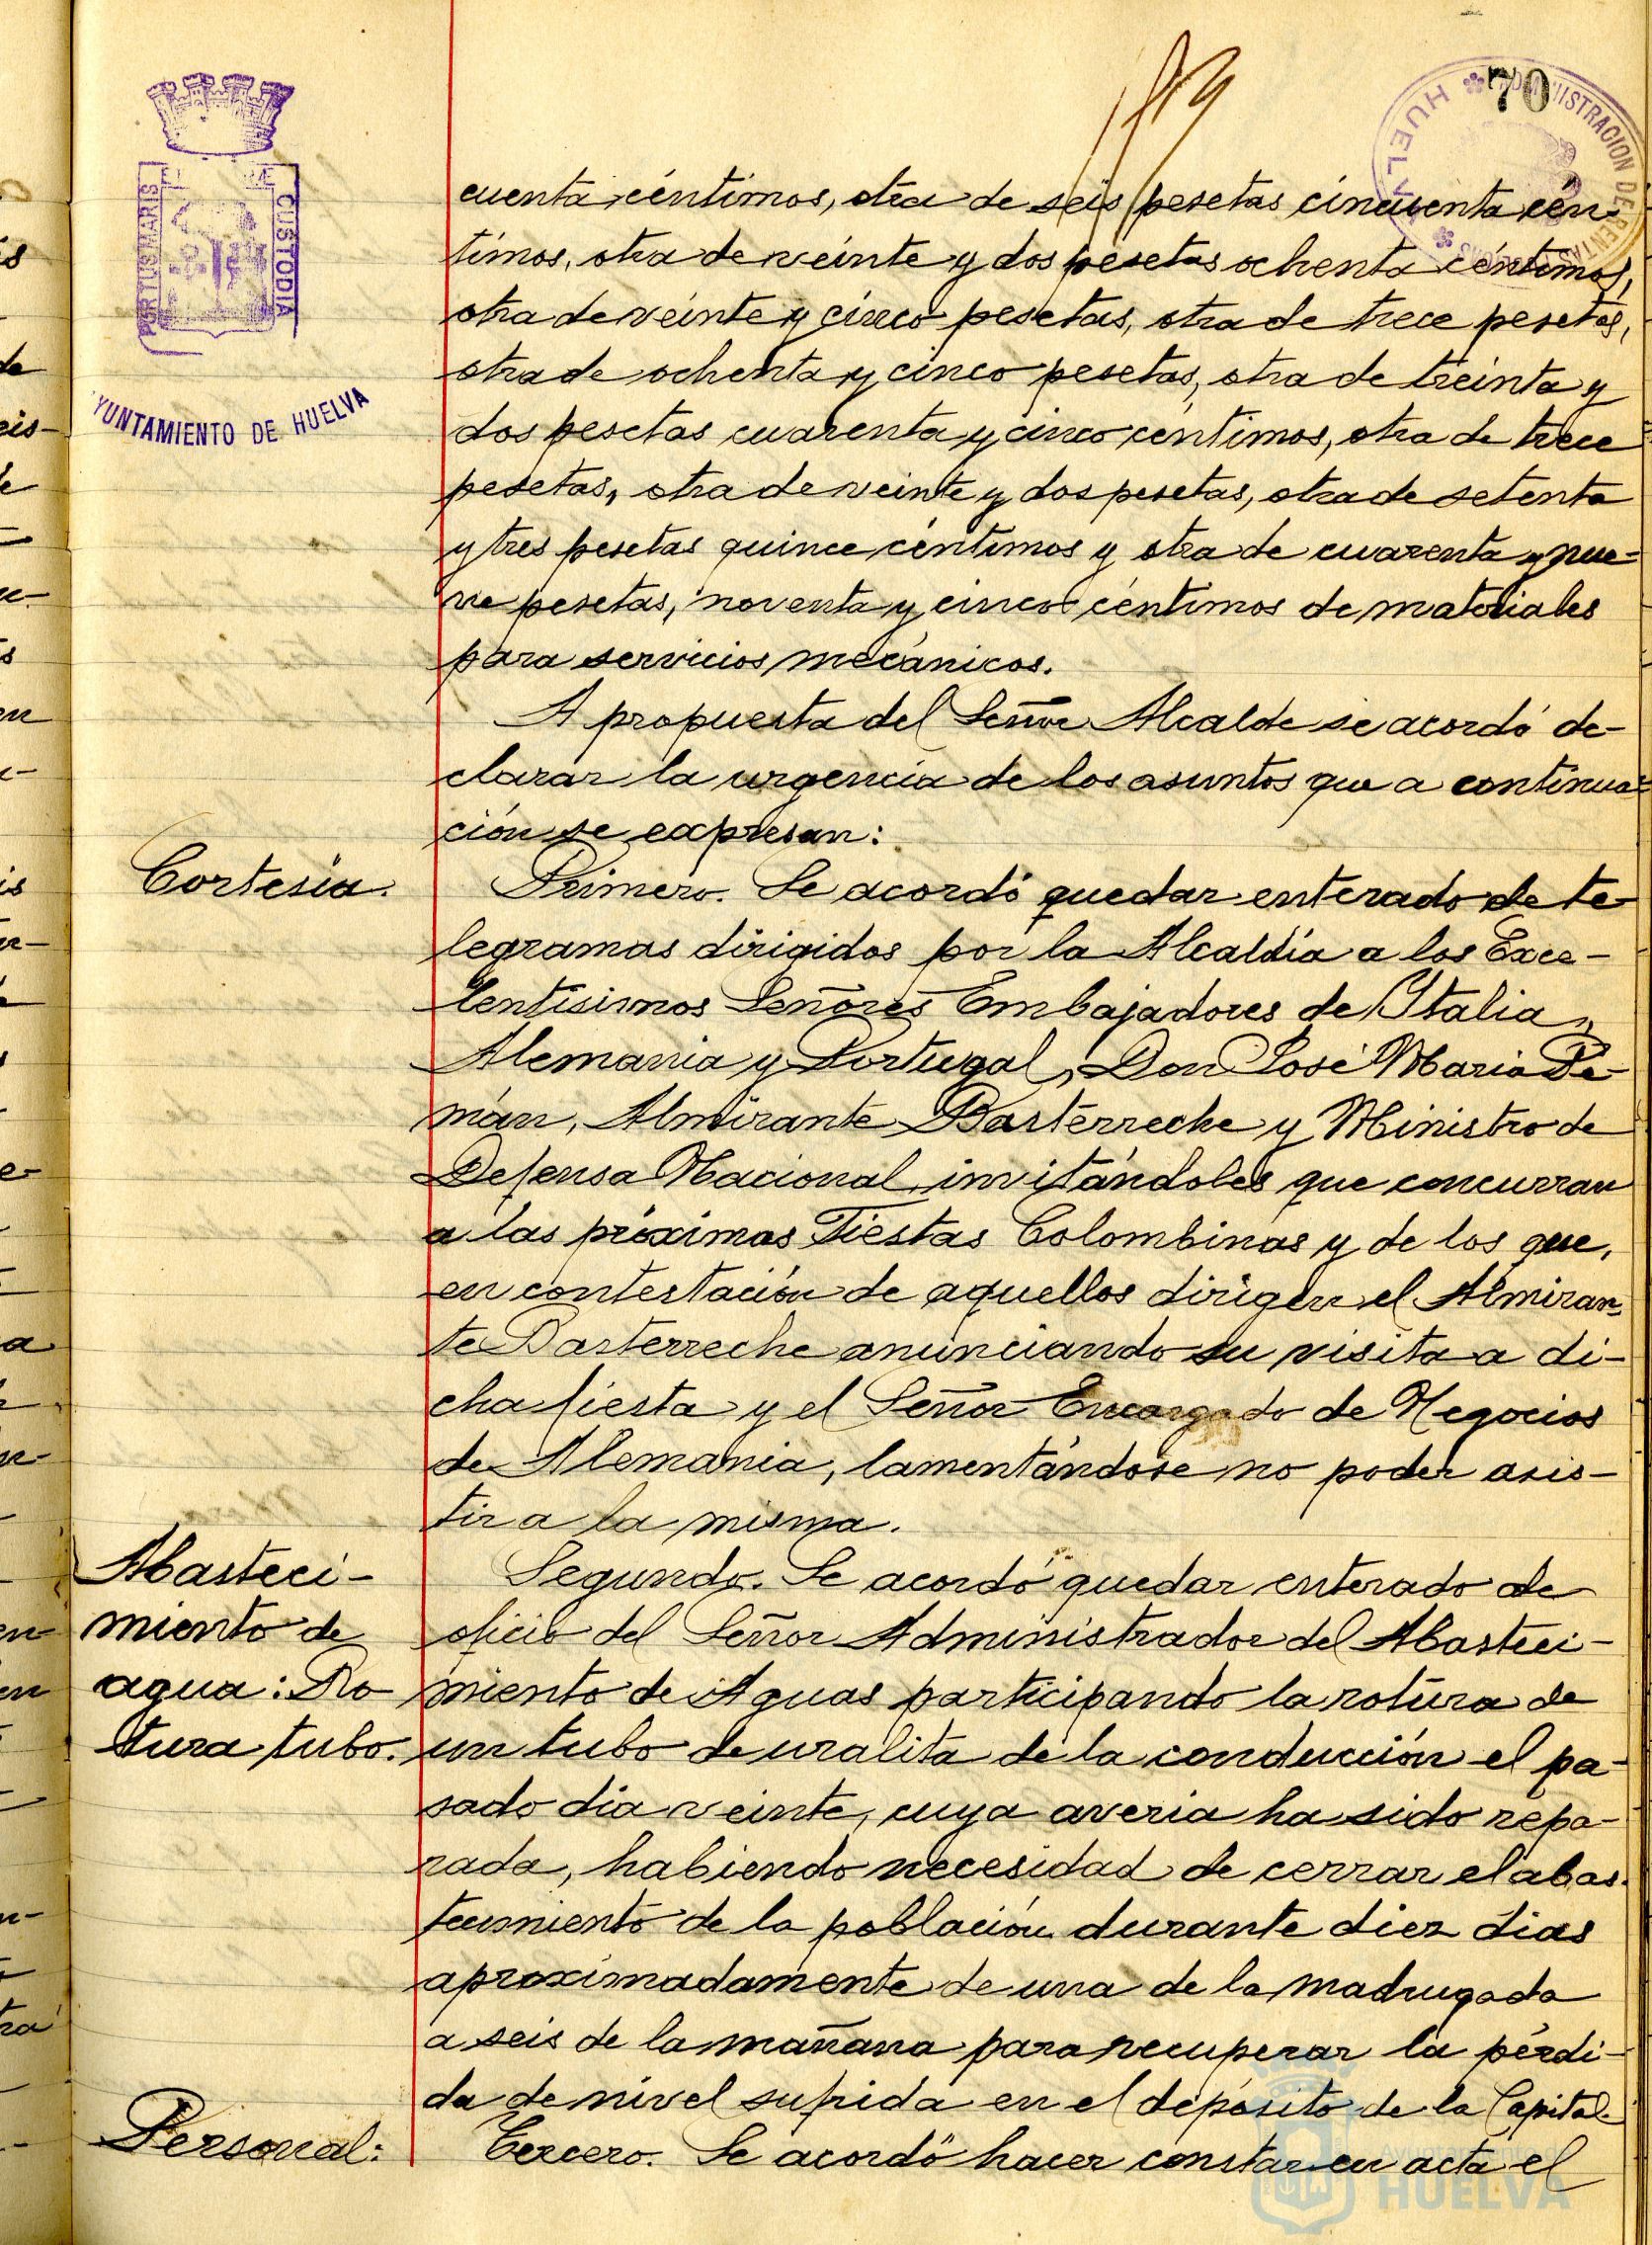 70
PORTUS MARIS
CUSTODIA
AYUNTAMIENTO DE HUELVA
ADMINISTRACION DE RENTAS
HUELVA
cuenta céntimos, otra de seis pesetas cincuenta cén-
timos, otra de veinte y dos pesetas ochenta céntimos,
otra de veinte y cinco pesetas, otra de trece pesetas,
otra de ochenta y cinco pesetas, otra de treinta y
dos pesetas cuarenta y cinco céntimos, otra de trece
pesetas, otra de veinte y dos pesetas, otra de setenta
y tres pesetas quince céntimos y otra de cuarenta y nue-
ve pesetas, noventa y cinco céntimos de materiales
para servicios mecánicos.
A propuesta del Señor Alcalde se acordó de-
clarar la urgencia de los asuntos que a continua-
ción se expresan:
Cortesía.
Primero. Se acordó quedar enterado de te-
legramas dirigidos por la Alcaldía a los Exce-
lentísimos Señores Embajadores de Italia,
Alemania y Portugal, Don José María Pe-
mán, Almirante Bastérreche y Ministro de
Defensa Nacional invitándoles que concurran
a las próximas Fiestas Colombinas y de los que,
en contestación de aquellos dirigen el Almiran-
te Basterreche anunciando su visita a di-
cha fiesta y el Señor Encargado de Negocios
de Alemania, lamentándose no poder asis-
tir a la misma.
Abasteci-
miento de
agua: Ro
tura tubo.
Segundo. Se acordó quedar enterado de
oficio del Señor Administrador del Abasteci-
miento de Aguas participando la rotura de
un tubo de uralita de la conducción el pa-
sado día veinte, cuya averia ha sido repa-
rada, habiendo necesidad de cerrar el abas-
tecimiento de la población durante diez dias
aproximadamente de una de la madrugada
a seis de la mañana para recuperar la pérdi-
da de nivel sufrida en el depósito de la Capital.
Personal:
Tercero. Se acordó hacer constar en acta el
Ayuntamiento de
HUELVA